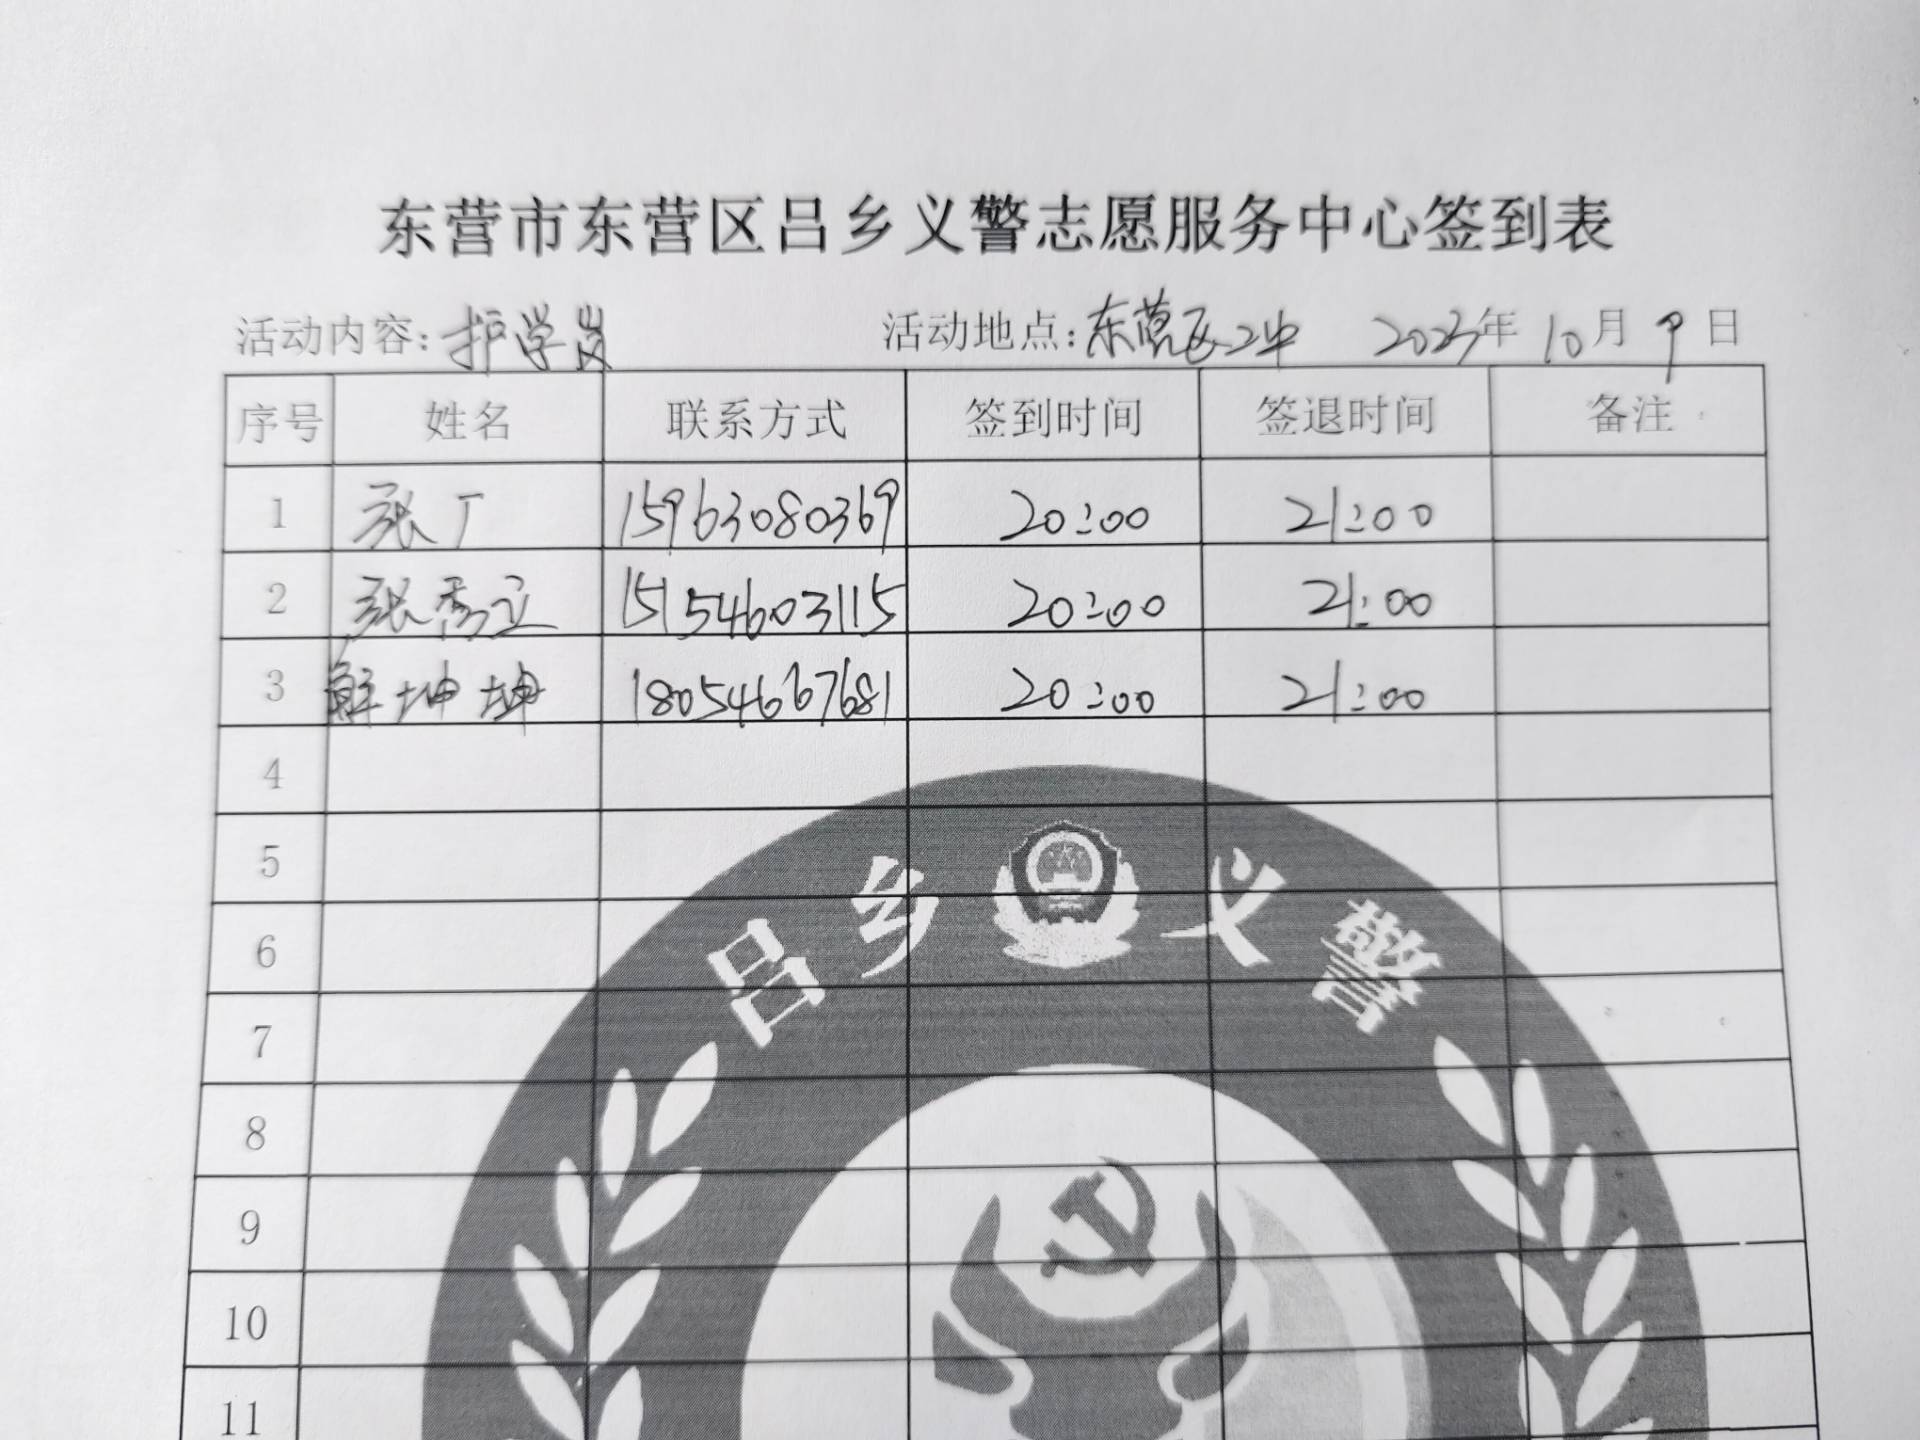 东营市东营区吕乡义警志愿服务中心签到表
活动内容：护学岗 活动地点：东营区2中 2023年10月9日
序号 姓名 联系方式 签到时间 签退时间 备注
1 张广 15963080369 20:00 21:00
2 张秀立 15154603115 20:00 21:00
3 解坤坤 18054667681 20:00 21:00
4
5
6
7
8
9
10
11
吕乡义警